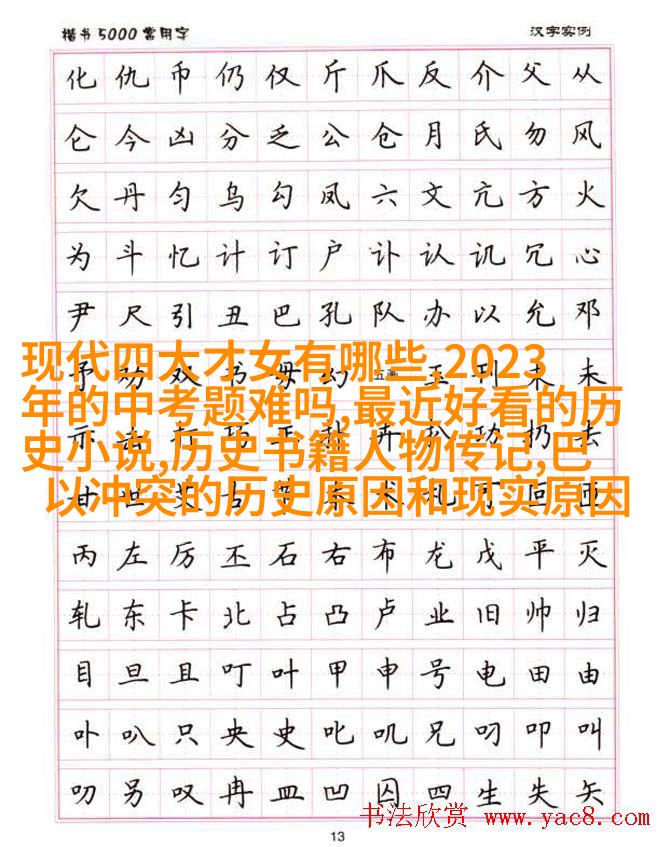 楷书5000常用字 汉字实例
化仇币仍仅斤爪反介父从
仑今凶分乏公仓月氏勿风
欠丹匀乌勾凤六文亢方火
为斗忆计订户讣认讥冗心
尹尺引丑巴孔队办以允邓
现代四大才女有哪些,2023
年的中考题难吗,最近好看的历
史小说,历史书籍人物传记,巴
以冲突的历史原因和现实原因
丙左厉丕石右布龙戊平灭
轧东卡北占凸卢业旧帅归
目旦且叮叶甲申号电田由
卟叭只央史叱叽兄叼叩叫
叨另叹冉皿凹囚四生失矢
书法欣赏 www.yac8.com
13